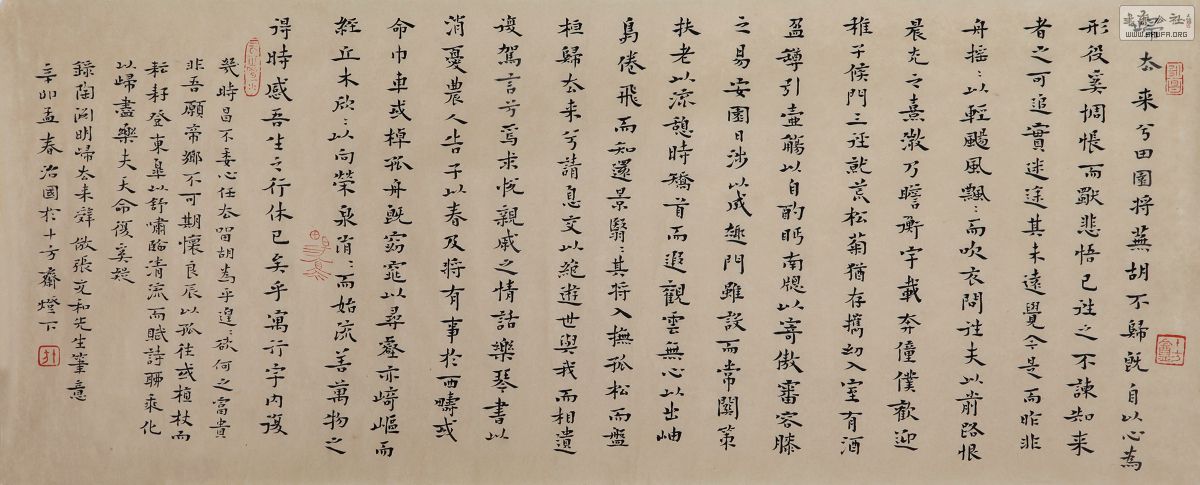 書法公社
WWW.SHUFA.ORG
厺来兮田園将蕪胡不歸既自以心為
形役奚惆悵而獸悲悟已往之不諫知来
者之可追實迷途其未遠覺今是而昨非
舟搖:以輕颺風飄:而吹衣問往夫以前路恨
晨光之熹微乃瞻衡宇載奔僮僕歡迎
稚子候門三逕就荒松菊猶存攜幼入室有酒
盈罇引壺觴以自酌眄南牕以寄傲審容膝
之易安園日涉以成趣門雖設而常關策
扶老以流憩時矯首而遐觀雲無心以出岫
鳥倦飛而知還景翳:其将入撫孤松而盤
桓歸厺来兮請息交以絶遊世與我而相遺
復駕言兮焉求悅親戚之情話樂琴書以
消憂農人告予以春及将有事於西疇或
命巾車或棹孤舟既窈窕以尋壑亦崎嶇而
經丘木欣:以向榮泉涓:而始流善萬物之
得時感吾生之行休已矣乎寓行字內復
幾時曷不委心任厺留胡為乎遑:欲何之富貴
非吾願帝鄉不可期懷良辰以孤往或植杖而
耘耔登東皋以舒嘯臨清流而賦詩聊乘化
以歸盡樂夫天命復奚疑
錄陶淵明歸厺来辭倣張文和先生筆意
辛卯孟春治國於十方齋燈下